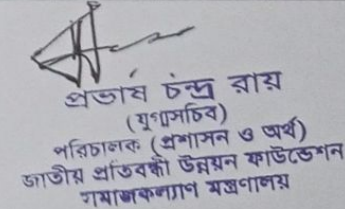 প্রভাষ চন্দ্র রায়
(যুগ্মসচিব)
পরিচালক (প্রশাসন ও অর্থ)
জাতীয় প্রতিবন্ধী উন্নয়ন ফাউন্ডেশন
সমাজকল্যাণ মন্ত্রণালয়